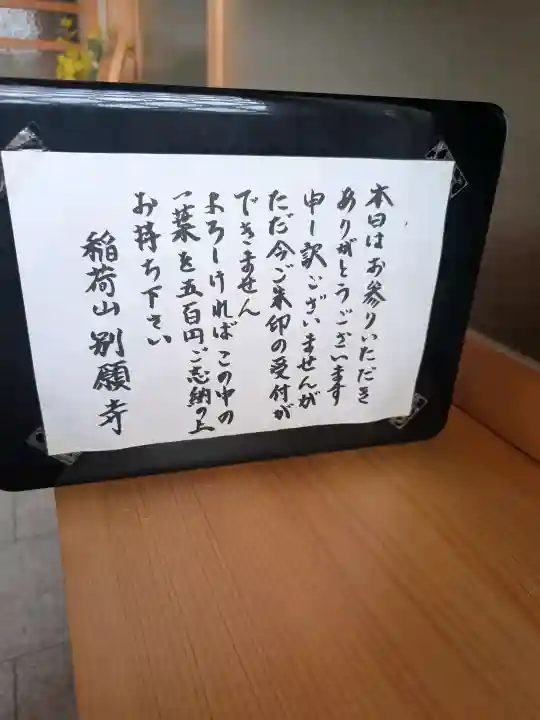 本日はお参りいただき
ありがとうございます
申し訳ございませんが
ただ今ご朱印の受付が
できません
よろしければこの中の
一葉を五百円ご志納の上
お持ち下さい
稲荷山 別願寺